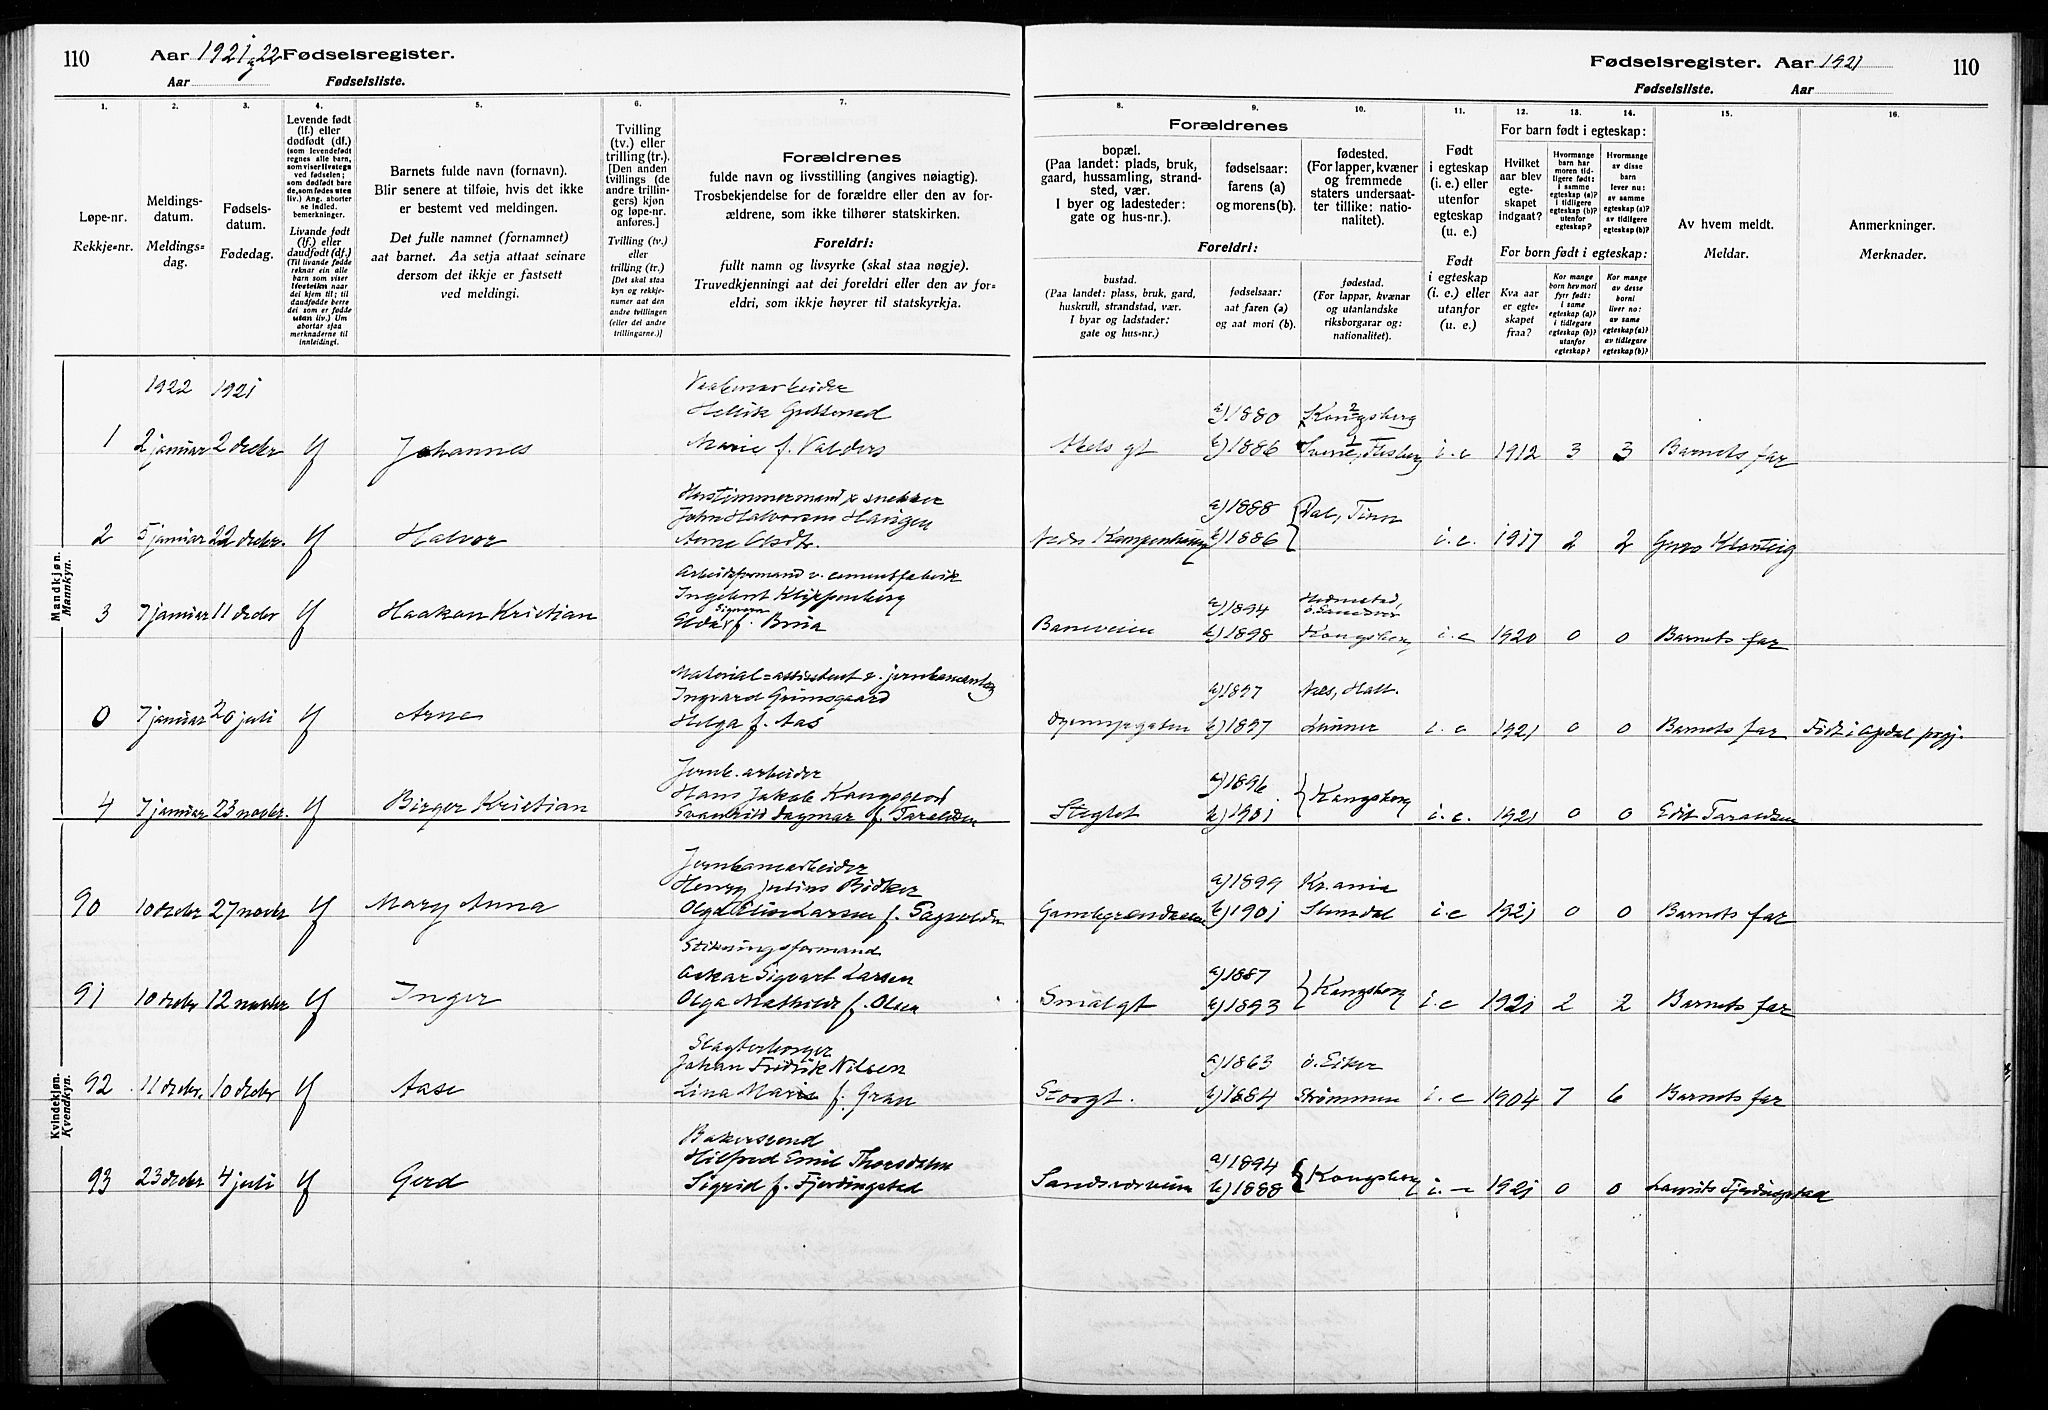 110
Aar 1921 22 Fødselsregister.
Aar Fødselsliste.
Fødselsregister. Aar 1921
Fødselsliste. Aar
110
1. 2. 3. 4. 5. 6. 7.
8. 9. 10. 11. 12. 13. 14. 15. 16.
Løpe-nr.
Rekkje=nr.
Meldings-
datum.
Meldings=
dag.
Fødsels-
datum.
Fødedag.
Levende født
(lf.) eller
dødfødt (df.)
(som levendefødt
regnes alle barn,
som viser livstegn
ved fødselen;
som dødfødt bare
de, som fødes uten
liv.) Ang. aborter
se indled.
bemerkninger.
Livande født
(lf.) eller
daudfødt (df.)
(Til livande fødde
reknar ein alle
barn som viser
livsteikn naar
dei kjem til; til
daudfødde berre
dei som er fødde
utan liv.) Um
abortar sjaa
merknaderne til
innleidingi.
Barnets fulde navn (fornavn).
Blir senere at tilføie, hvis det ikke
er bestemt ved meldingen.
Det fulle namnet (fornamnet)
aat barnet. Aa setja attaat seinare
dersom det ikkje er fastsett
ved meldingi.
Tvilling
(tv.) eller
trilling (tr.).
[Den anden
tvillings (de
andre trillin-
gers) kjøn
og løpe-nr.
anføres.]
Tvilling (tv.)
eller
trilling (tr.)
[Det skal staa
kyn og rekkje-
numer aat den
andre tvillingen
(eller dei andre
trillingarne.)]
Forældrenes
fulde navn og livsstilling (angives nøiagtig).
Trosbekjendelse for de forældre eller den av for-
ældrene, som ikke tilhører statskirken.
Foreldri:
fullt namn og livsyrke (skal staa nøgje).
Truvedkjenningi aat dei foreldri eller den av for=
eldri, som ikkje høyrer til statskyrkja.
Forældrenes
bopæl.
(Paa landet: plads, bruk,
gaard, hussamling, strand-
sted, vær.
I byer og ladesteder:
gate og hus-nr.).
fødselsaar:
farens (a)
og morens (b).
fødested.
(For lapper, kvæner
og fremmede
staters undersaat-
ter tillike: natio-
nalitet).
Foreldri:
bustad.
(Paa landet: plass, bruk, gard,
huskrull, strandstad, vær.
I byar og ladstader:
gate og hus-nr.)
fødselsaar:
aat faren (a)
og aat mori (b).
fødestad.
(For lappar, kvænar
og utanlandske
riksborgarar og:
nationalitet).
Født
i egteskap
(i. e.) eller
utenfor
egteskap
(u. e.)
Født
i egteskap
(i. e.) eller
utanfor
(u. e.)
For barn født i egteskap:
Hvilket
aar blev
egte-
skapet
indgaat?
Hvormange
barn har
moren tid-
ligere født:
i samme
egteskap (a)?
i tidligere
egteskap (b)?
utenfor
egteskap?
Hvormange
av disse
barn
lever nu:
av samme
egteskap (a)?
av tidligere
egteskap (b)?
For born født i egteskap:
Kva aar
er egte-
skapet
fraa?
Kor mange
born hev mori
fyrr født:
i same
egteskap (a)?
i tidlegare
egteskap (b)?
utanfor
egteskap?
Kor mange
av desse
borni
liver no:
av same
egteskap (a)?
av tidlegare
egteskap (b)?
Av hvem meldt.
Meldar.
Anmerkninger.
Merknader.
Mandkjøn.
Mannkyn.
1922 1921
1 2 januar 2 decbr lf Johannes
Marie f. Valders
a) 1880 Kongsberg
b) 1886 i. e 1912 3 3 Barnets far
2 5 januar 22 decbr. lf Halvor
John Halvorsen Haugen
a) 1888 Dal, Tinn
b) 1886 i. e. 1917 2 2
3 7 januar 11 decbr lf Haakon Kristian
Arbeidsformand v. cementfabrik
Ingebret Klippenberg
f. Brua
Baneveien a) 1894
b) 1898 Kongsberg i. e 1920 0 0 Barnets far
0 7 januar 20 juli lf Arne
Ingvard Grimsgaard
Helga f. Aas
a) 1897 Nes, Hall.
b) 1897 Lunner i. e 1921 0 0 Barnets far Født i Opdal prgj.
4 7 januar 23 novbr. lf Birger Kristian
Jernb. arbeider
Hans Jakob Kongsgrod
Svanhild Dagmar f. Taraldsen
Steglet a) 1896 Kongsberg
b) 1901 i. e. 1921 0 0 Edit Taraldsen
Kvindekjøn.
Kvendkyn.
90 10 decbr 27 novbr lf Mary Anna
Jernbanearbeider
Henry Julius Bødker
a) 1899 Kr.ania
b) 1901 i. e 1921 0 0 Barnets far
91 10 decbr 12 novbr lf Inger
Oskar Sigvart Larsen
Olga Mathilde f. Olsen
Smalgt a) 1887 Kongsberg
b) 1893 i. e 1921 2 2 Barnets far
92 11 decbr. 10 decbr lf Aase
Johan Fredrik Nilsen
Lina Marie f. Gran
Storgt. a) 1863 ö. Eiker
b) 1884 Strømmen i. e 1904 7 6 Barnets far
93 23 decbr 4 juli lf Gerd
Bakersvend
Hilfred Emil Thorsdalen
Sigrid f. Fjerdingstad
Sandsværveien a) 1894 Kongsberg
b) 1888 i. e 1921 0 0 Laurits Fjerdingstad